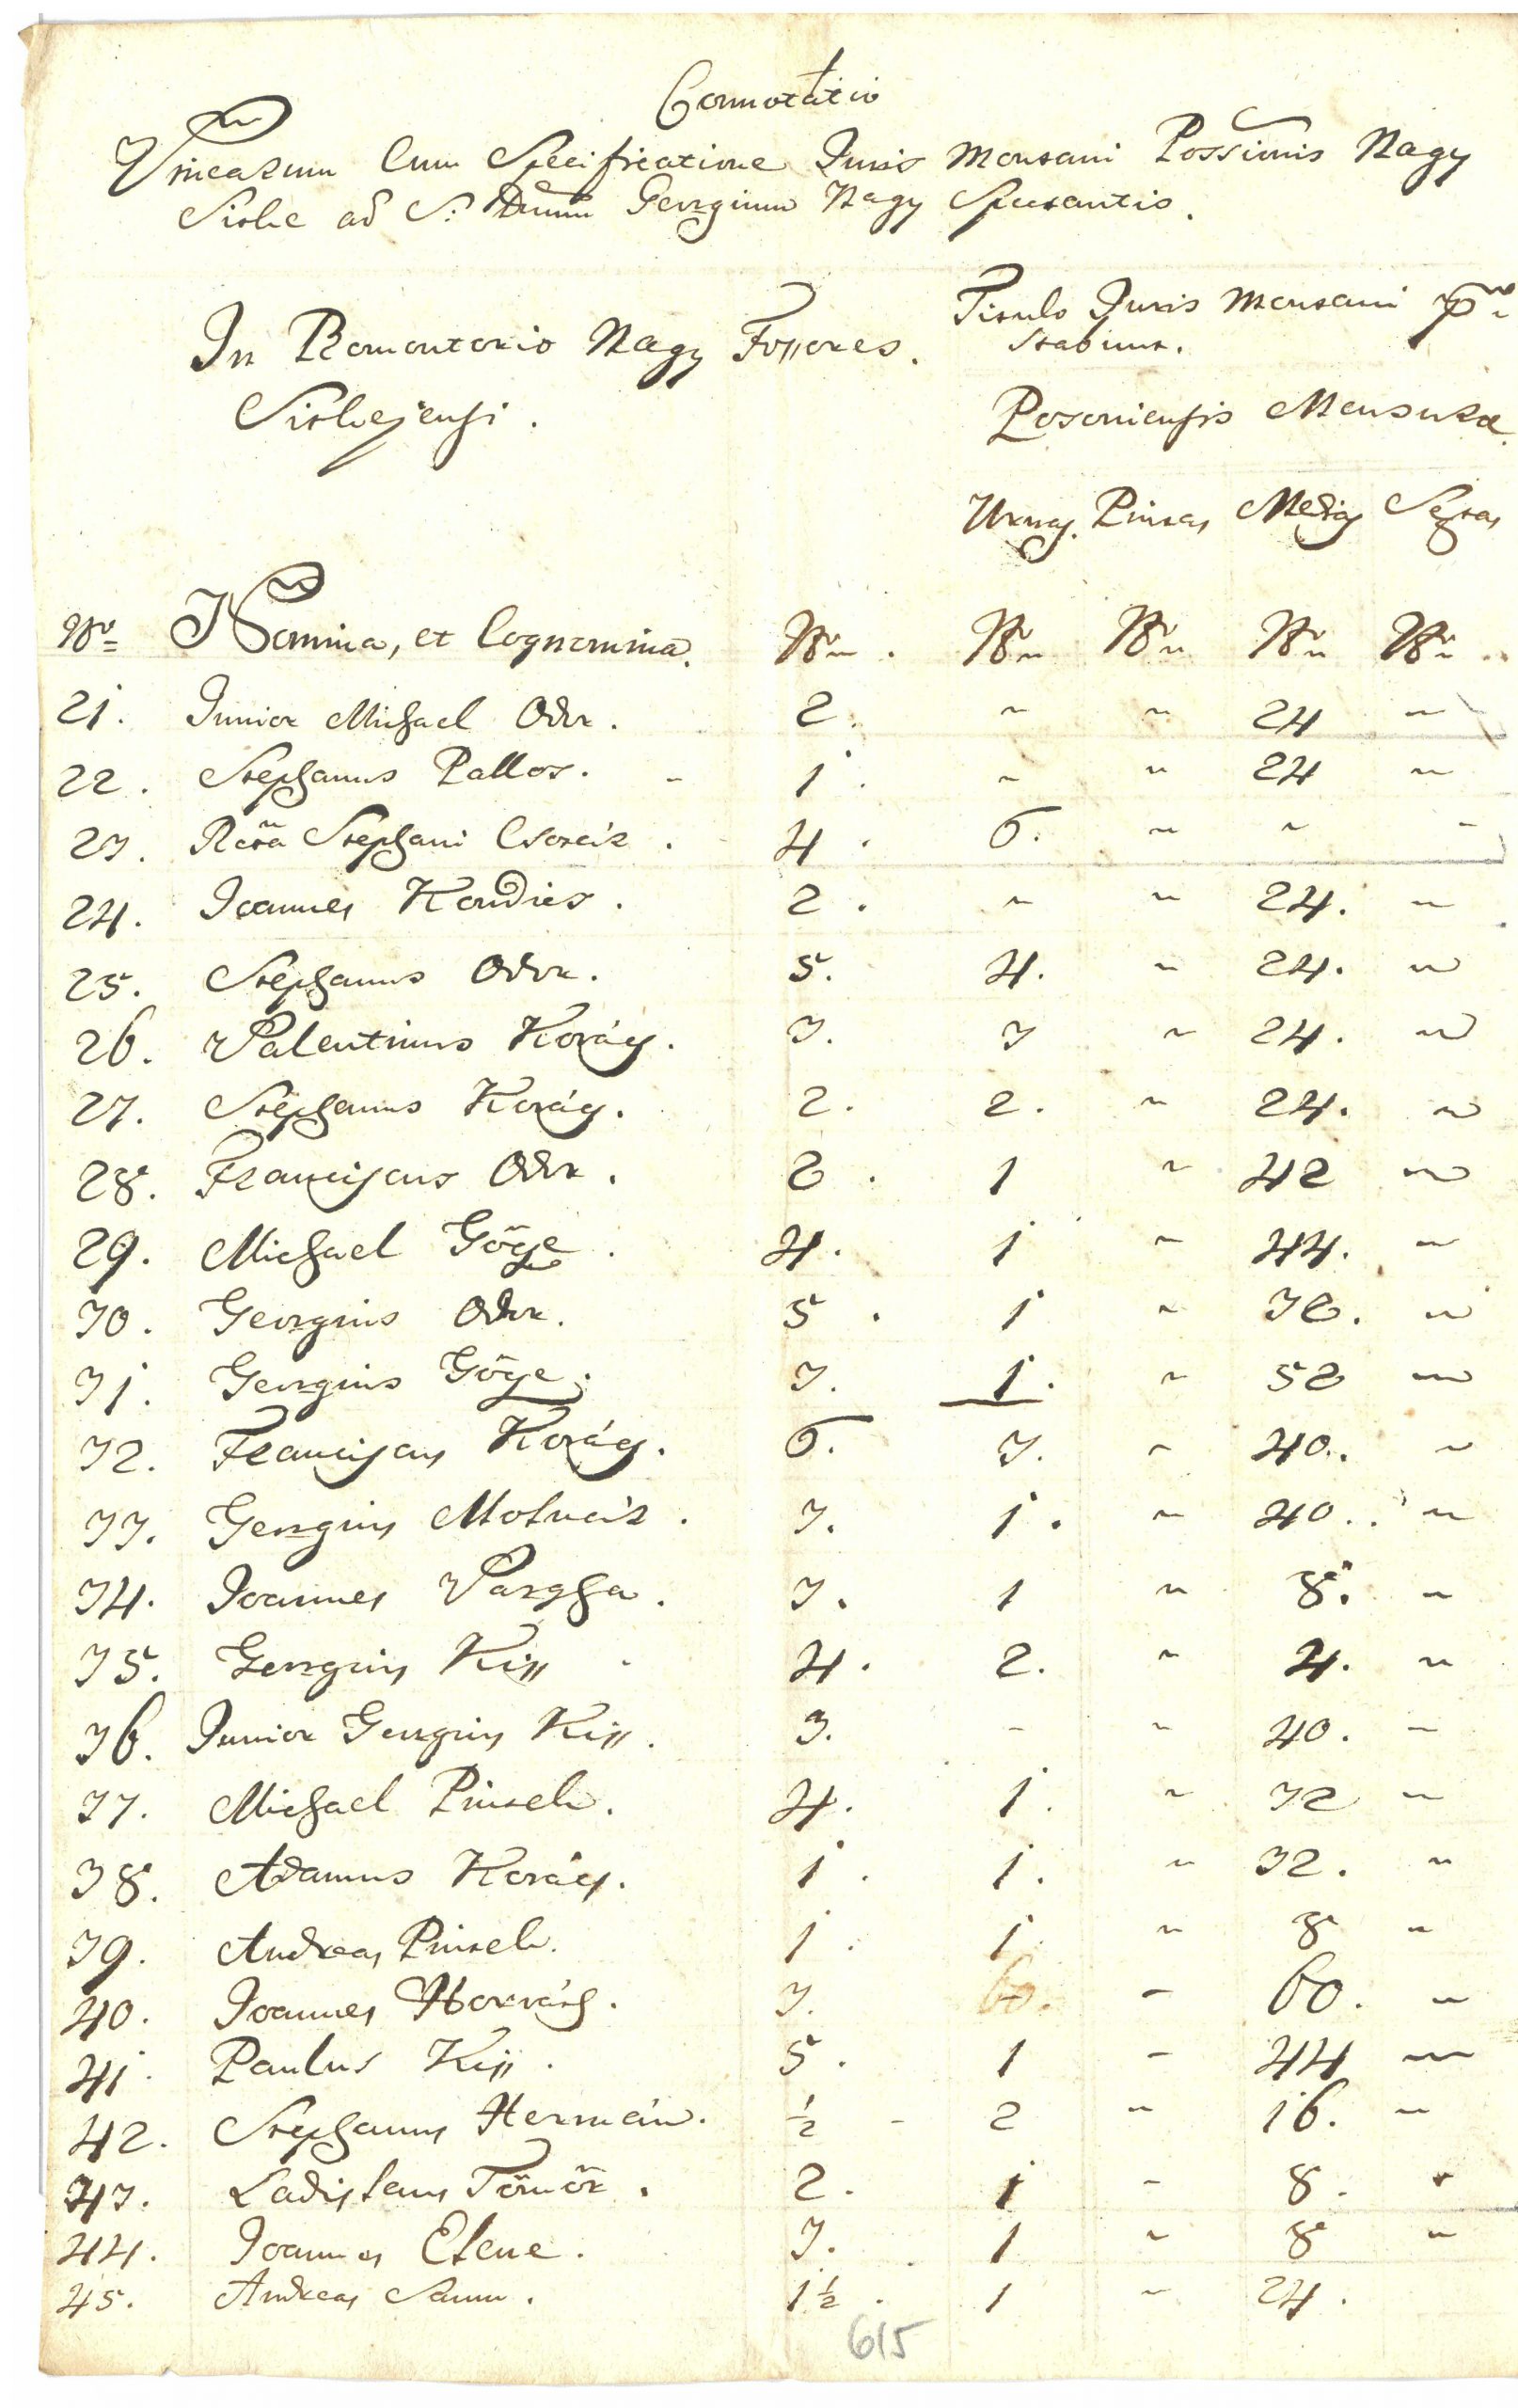 Connotatio
Vinearum Cum Specificatione Juris Montani Possionis Nagy
Sitke ad S. Dnum Georgium Nagy Spectantis.
Titulo Juris Montani
In Promontorio Nagy Fossores. praestabunt.
Sitkejensi. Posoniensis Mensurae
Urnas. Pintas Medias Seytas
Nro Nomina, et Cognomina. Nro. Nro Nro Nro Nro
21. Junior Michael Odor. 2. ~ ~ 24 ~
22. Stephanus Pallos. - 1. ~ ~ 24 ~
23. Rcta Stephani Csorciz. 4. 6. ~ ~ -
24. Joannes Kondics. 2. ~ ~ 24. ~
25. Stephanus Odor. 5. 4. ~ 24. ~
26. Valentinus Kovács. 3. 3 ~ 24. ~
27. Stephanus Kovács. 2. 2. ~ 24. ~
28. Franciscus Odor. 2. 1 ~ 42 ~
29. Michael Göcze. 4. 1 ~ 44. ~
30. Georgius Odor. 5. 1 ~ 32. ~
31. Georgius Göcze. 3. 1. ~ 52 ~
32. Franciscus Kovács. 6. 3. ~ 40. ~
33. Georgius Molnár. 3. 1. ~ 40. ~
34. Joannes Vargha. 3. 1 ~ 8. ~
35. Georgius Kiss 4. 2. ~ 4. ~
36. Junior Georgius Kiss. 3. - ~ 40. -
37. Michael Pintek. 4. 1. ~ 32 ~
38. Adamus Kovács. 1. 1. ~ 32. ~
39. Andreas Pintek. 1. 1 ~ 8 ~
40. Joannes Horváth. 3. 60. - 60. ~
41. Paulus Kiss. 5. 1 - 44 ~
42. Stephanus Hermán. ½ - 2 ~ 16. ~
43. Ladislaus Tömör. 2. 1 - 8.
44. Joannes Elene. 3. 1 ~ 8 ~
45. Andreas 1½. 1 ~ 24.
615